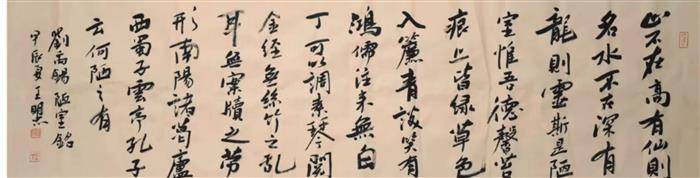 山不在高有仙則
名水不在深有
龍則靈斯是陋
室惟吾德馨苔
痕上皆绿草色
入簾青談笑有
鴻儒往来無白
丁可以調素琴閱
金經無絲竹之乱
耳無案牘之劳
形南陽諸葛廬
西蜀子雲亭孔子
云何陋之有
劉禹錫陋室銘
甲辰夏王